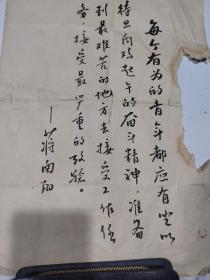 每个有为的青年都应有坐以
待旦闻鸡起午的奋斗精神，准备
到最难苦的地方去接受工作任
务，接受最严重的考验。
——蒋南翔